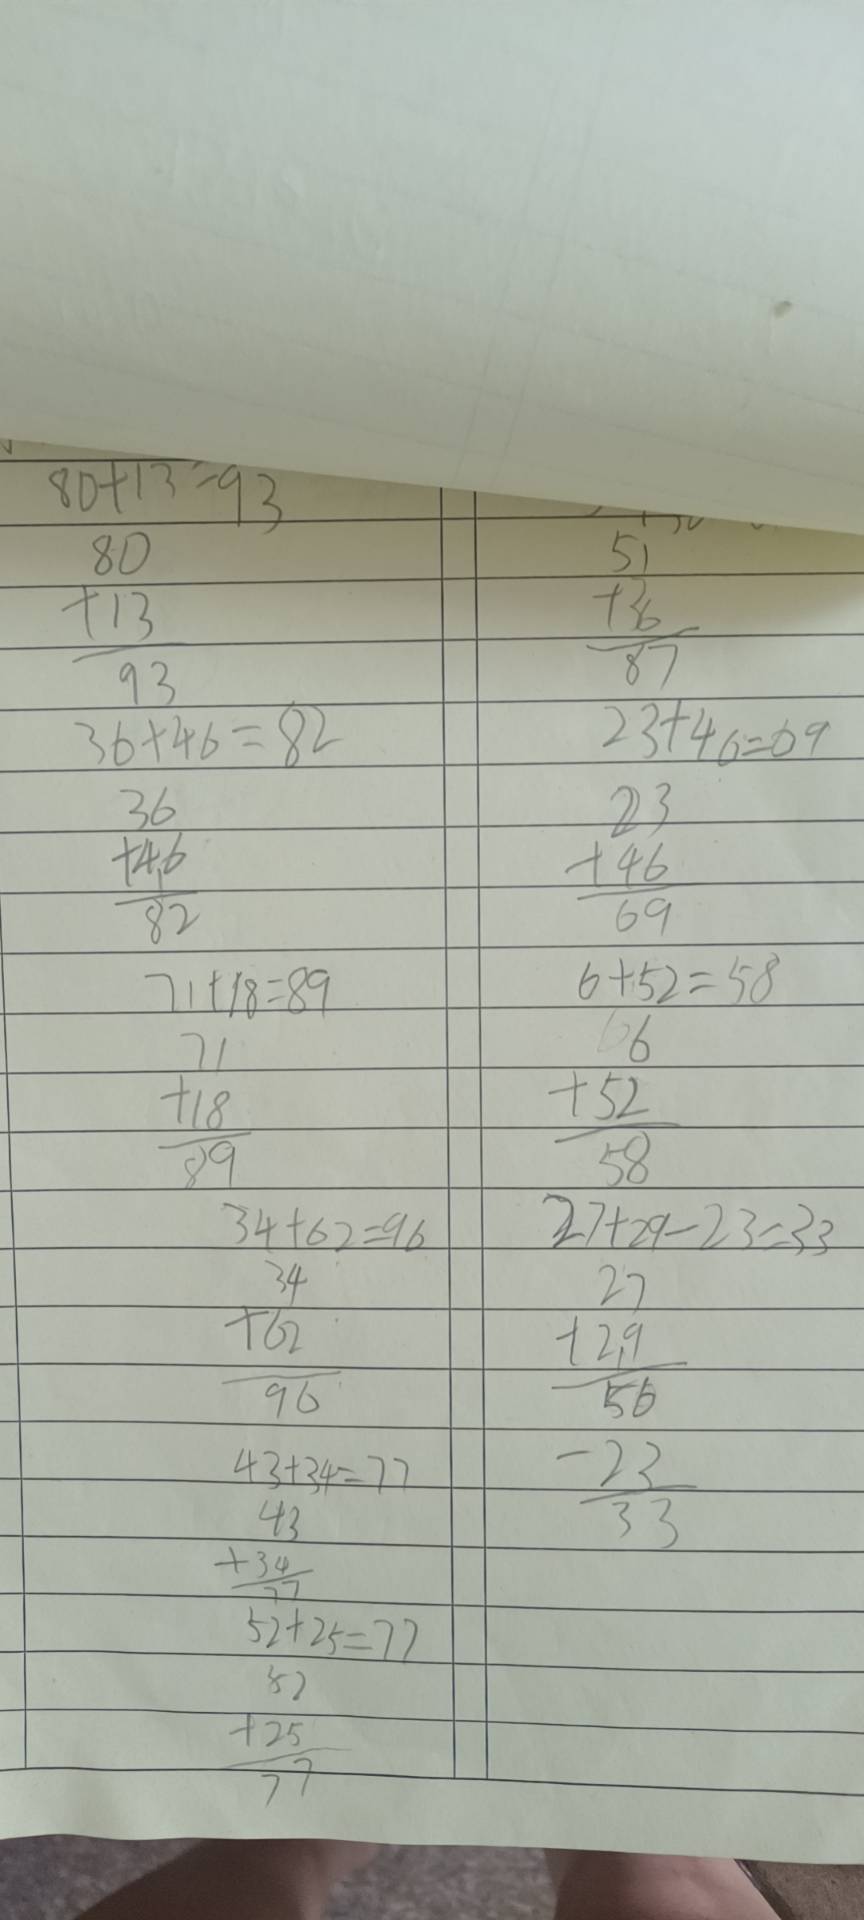 80+13=93
80
+13
93
36+46=82
36
+46
82
71+18=89
71
+18
89
34+62=96
34
+62
96
43+34=77
43
+34
77
52+25=77
52
+25
77
51
+36
87
23+46=69
23
+46
69
6+52=58
6
+52
58
27+29-23=33
27
+29
56
-23
33